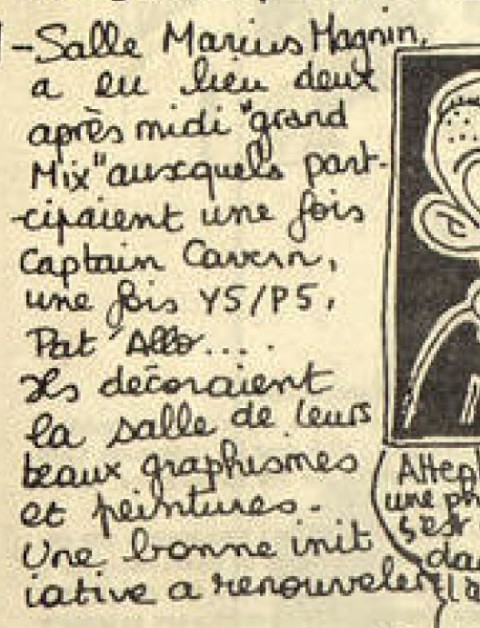 -Salle Marius Magnin,
a eu lieu deux
après midi "grand
Mix" auxquels part-
-cipaient une fois
Captain Cavern,
une fois Y5/P5,
Pat Allo....
Ils décoraient
la salle de leurs
beaux graphismes
et peintures.
Une bonne init
iative a renouveler
une
s'est